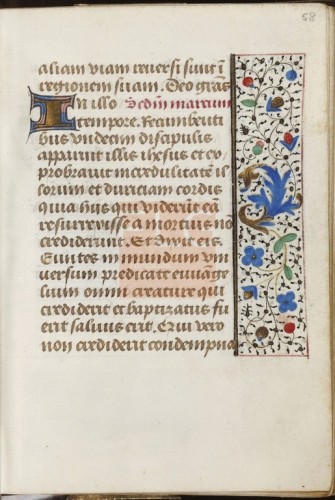 58
aliam viam reversi sunt ī
regionem suam. Deo gras
In illo Secdm marcum
tempore. Recumbenti
bus undecim discipulis
apparuit illis ihesus et ex
probravit incredulitatē il
lorum et duriciam cordis
quia hijs qui viderūt eū
resurrexisse a mortuis nō
crediderunt. Et dixit eis.
Euntes in mundum vni
versum predicate evvāge
lium omni creature qui
crediderit et baptizatus fu
erit salvus erit. Qui vero
non crediderit condempna